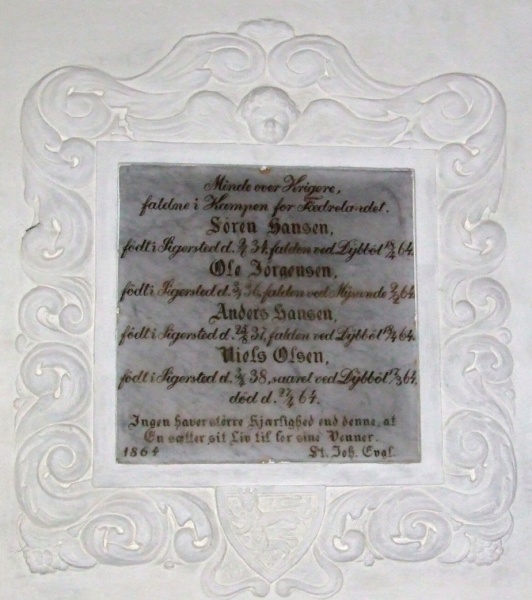 Minde over Krigere,
faldne i Kampen for Fædrelandet.
Sören Hansen,
født i Sigersted d. 34, falden ved Dÿbböl 18/4 64.
Ole Jørgensen,
født i Sigersted d. 36, falden ved Mijsunde 2/2 64.
Anders Hansen,
født i Sigersted d. 37, falden ved Dÿbböl 18/4 64.
Niels Olsen,
født i Sigersted d. 38, saaret ved Dÿbböl 64.
død d. 64.
Ingen haver större Kjærlighed end denne, at
En sætter sit Liv til for sine Venner.
1864 St. Joh. Evgl.